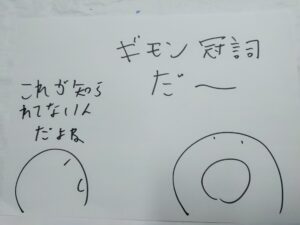 ギモン冠詞
だ〜
これが知ら
れてないん
だよね